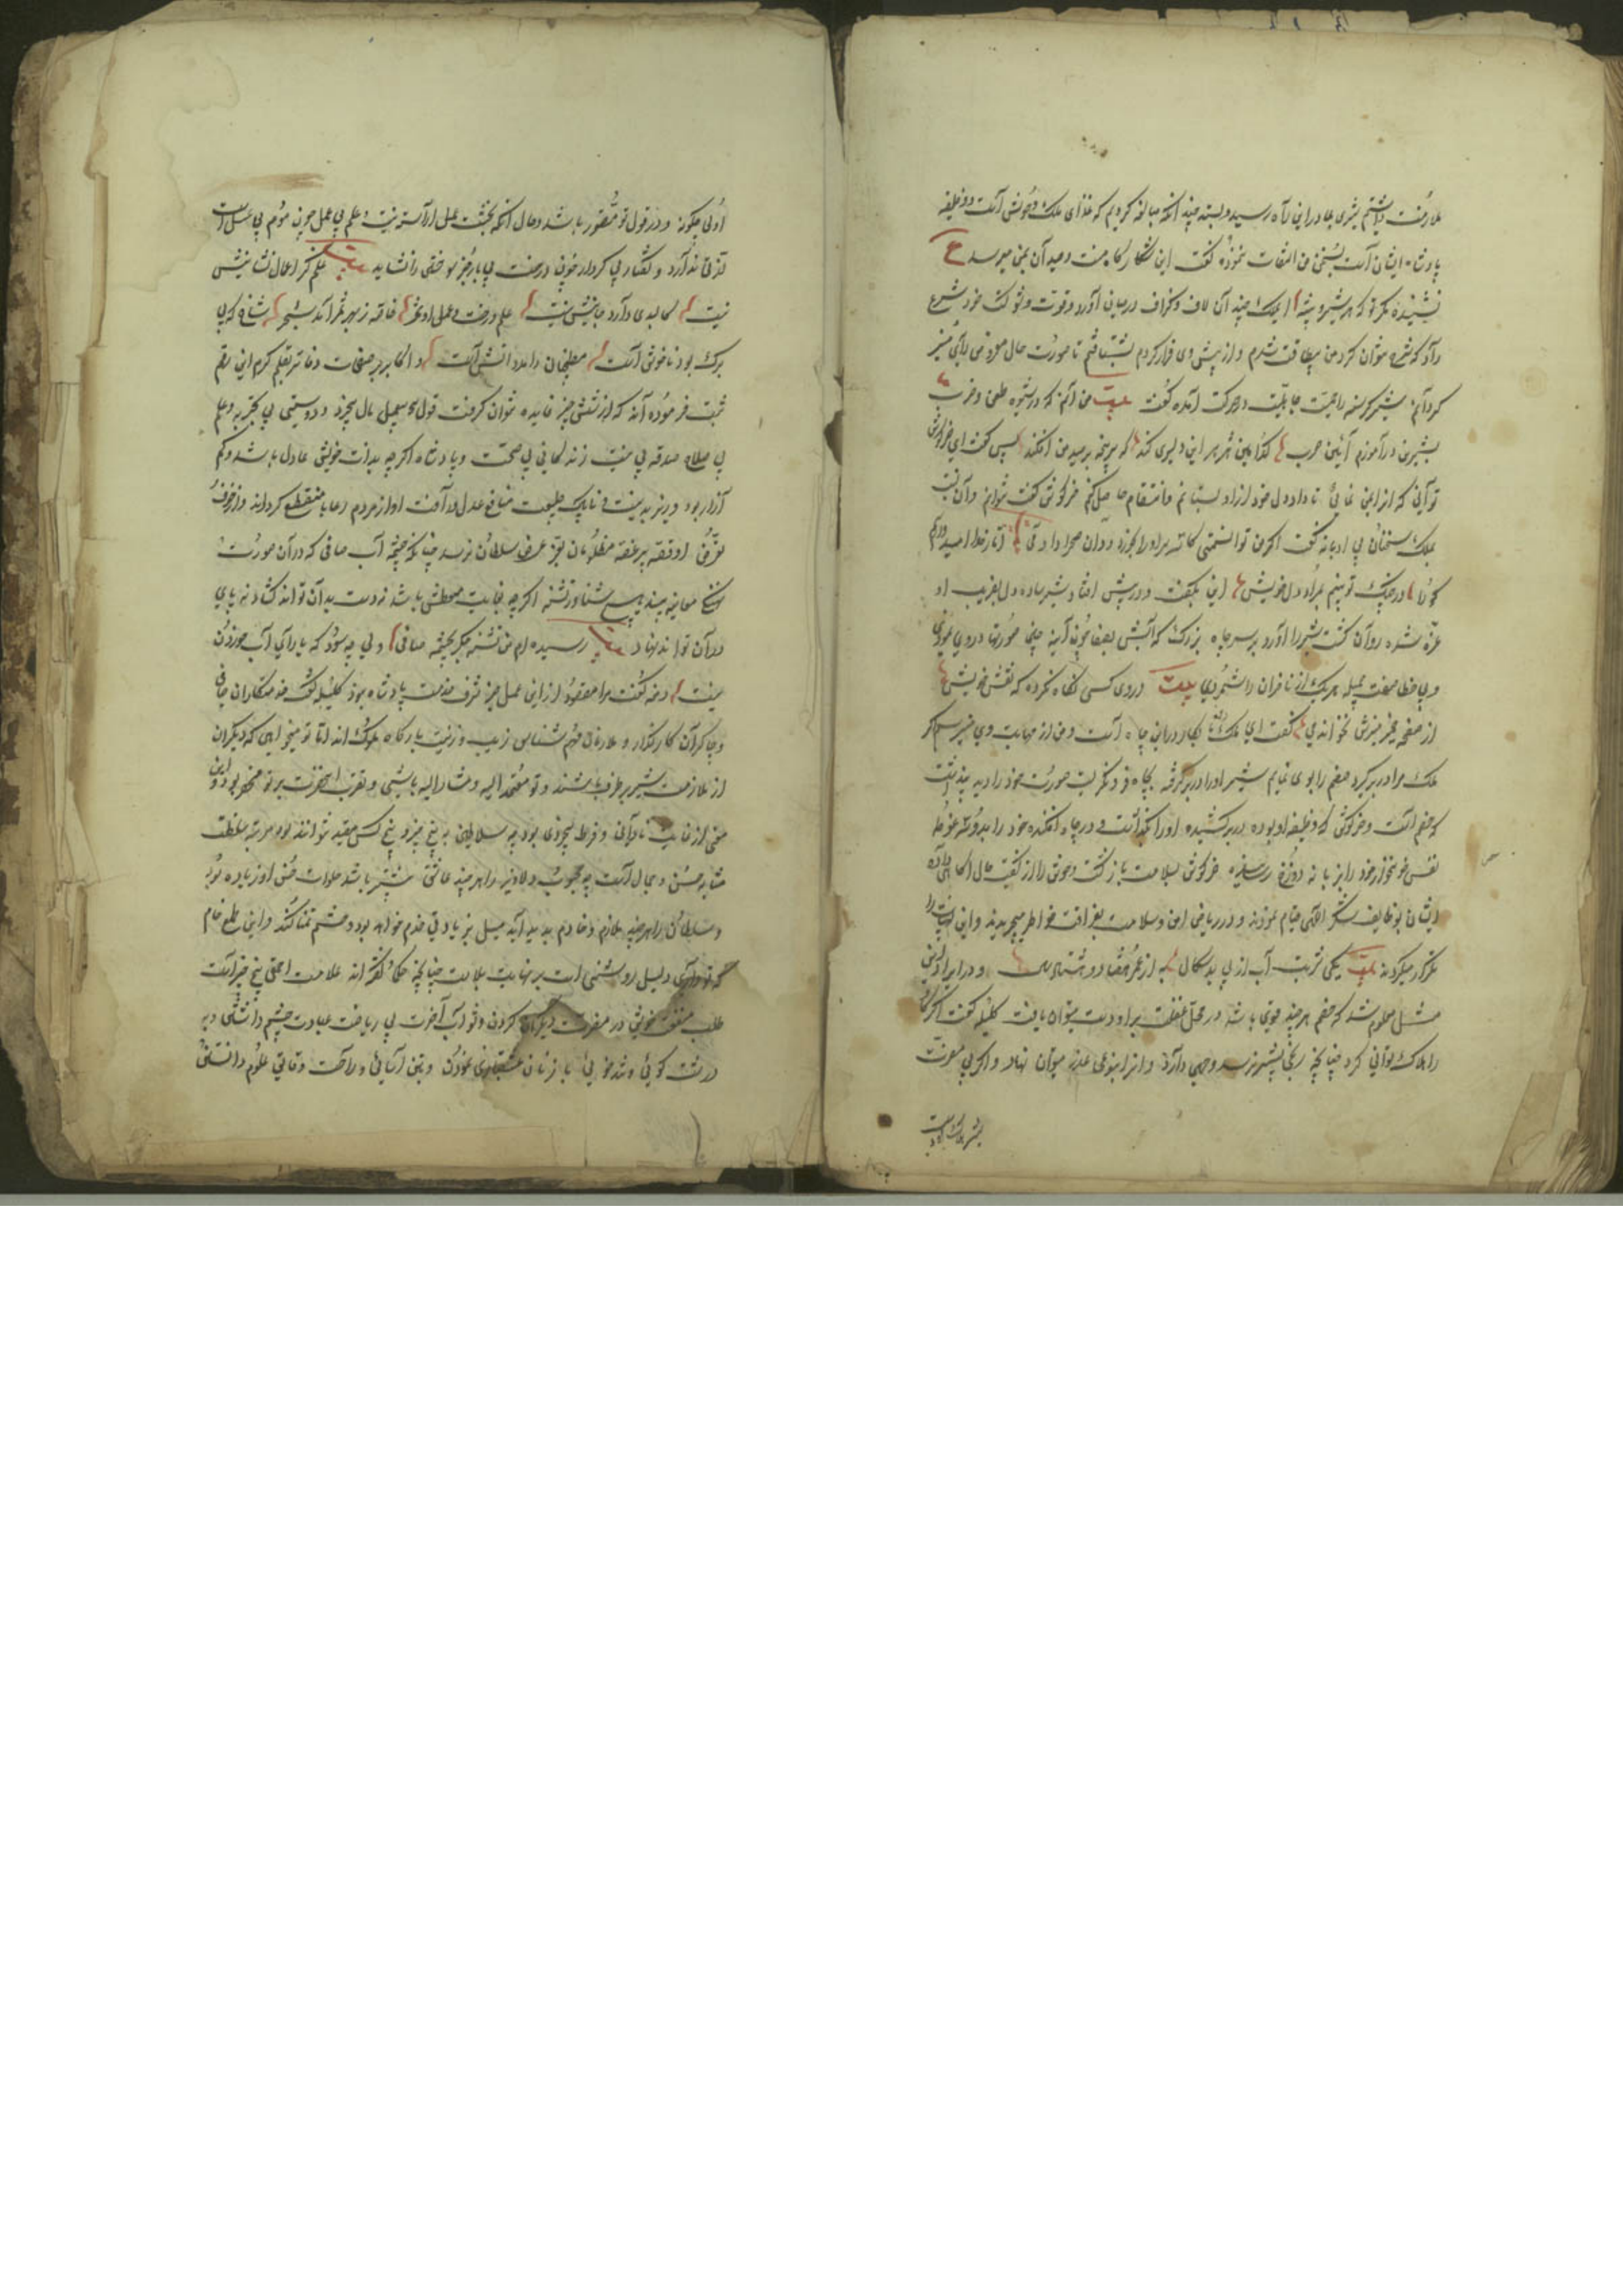 ملازمت داشتم شیری مادر این راه رسید و بستد چند انکه مبالغه کردم که غذای ملک وحوش است و وظیفه
پادشاه ایشان است بسخن من التفات ننمود و گفت این شکارگاه منست و صید آن بمن میرسد ع
نشنیده مگر تو که هر شیر و بیشه ای ملک چند آن لاف و گزاف در میان آورد و قوت و شوکت خود شرح
داد که شرح نتوان کرد من بیطاقت شدم و از پیش وی فرار کردم بشتافتم تا صورت حال معروض رأی منیر
گردانم شیر گرسنه را حمیت جاهلیت در حرکت آمده گفت بیت من آنم که در شیوه طعن و ضرب
بشیران در آموزم آیین حرب کدامین هژبر این دلیری کند که سرپنجه بر صید من افکند پس گفت ای خرگوش
توانی که او را بمن نمائی تا داد دل خود از او بستانم و انتقام حاصل کنم خرگوش گفت توانم و آن
ملک سخنان بی ادبانه گفت اگر من توانستمی کاسه سر او را
در چنگ تو بینم بمراد دل خویش این بگفت و در پیش افتاد شیر ساده دل بفریب او
غره شده روان گشت شیر را آورد بر سر چاه بزرگ که آبش بصفا چون آینه چینی صورتها در وی نمودی
و بی خطا صفت حلیه هر یک از ناظران را شمردی بیت در وی کسی نگاه نکرده که نقش خویش
از صفحه ضمیر منیرش نخواندی گفت ای ملک آن نابکار در این چاه است و من از مهابت وی میترسم اگر
ملک مرا در بر گیرد خصم را بوی نمایم شیر او را در بر گرفته بچاه فرو نگریست صورت خود را دید پنداشت
که خصم است و خرگوش که وظیفه او بوده در بر کشیده او را بگذاشت و در چاه افکنده خود را بدو سه غوطه
نفس خونخوار خود را بزبانه دوزخ رسانیده خرگوش بسلامت بازگشت وحوش را از کیفیت حال آگاهی داده
ایشان بوظایف شکر الهی قیام نمودند و در ریاض امن و سلامت بفراغت خاطر میچریدند و این بیت را
تکرار میکردند بیت یکی شربت آب از پی بدسگال به از عمر هفتاد و هشتاد سال و در ایراد این
مثل معلوم شد که خصم هر چند قوی باشد در محل غفلت بر او دست میتوان یافت کلیله گفت اگر گاو
را هلاک توانی کرد چنانچه رنجی بشیر نرسد وجهی دارد و انرا بنوعی عذر میتوان نهاد و اگر بی مضرت
اولی چگونه و در قول تو متصور باشد و حال انکه بحشمت عمل اراسته نیست و علم بی عمل چون موم بی عسل است
لذتی ندارد و گفتار بی کردار چون درخت بی بار بجز سوختن را نشاید بیت علم کز اعمال نشانیش
نیست کالبدی دارد جانیش نیست علم درخت و عمل او ثمر خاصه ز بهر ثمر آمد شجر شاخ که بی
برگ بود ناخوش است مطبخیان را مدد اتش است و اکابر بر صفحات دفاتر بقلم کرم این رقم
ثبت فرموده اند که از شش چیز فایده نتوان گرفت قول بی عمل مال بیخرد و دوستی بی تجربه و علم
بی صلاح صدقه بی نیت زندگانی بی صحت و پادشاه اگر چه بذات خویش عادل باشد و کم
آزار بود وزیر بدنیت و ناپاک طبیعت منافع عدل و رأفت او از مردم رعایا منقطع گرداند و از خوف
تعرض او قصه پر غصه مظلومان بعرض سلطان نرسد چنانکه چشمه آب صافی که در آن صورت
نهنگ معاینه بیند هیچ شناور تشنه اگر چه بغایت متعطش باشد نه دست بدان تواند گشاد نه پای
در آن تواند نهاد بیت رسیده ام من تشنه جگر بچشمه صافی ولی چه سود که یارای آب خوردن
نیست دمنه گفت مرا مقصود از این عمل جز شرف خدمت پادشاه نبود کلیله گفت خدمتکاران کافی
و چاکران کارگذار و ملازمان فهم شناس زیب و زینت بارگاه ملوک اند اما تو میخواهی که دیگران
از ملازمت شیر برطرف باشند و تو معتمد الیه و مشار الیه باشی و تقرب انحضرت بر تو منحصر بود و این
معنی از غایت نادانی و فرط بیخردی بود چه سلاطین به هیچ چیز و هیچ کس مقید نتوانند بود مرتبه سلطنت
مشابه حسن و جمال است چه محبوب دلاویز را هر چند عاشق بیشتر باشد جلوات حسن او زیاده بود
و سلطان را هر چند ملازم و خادم پدید آید میل بزیادتی خدم خواهد بود و حشم تمنا کند و این طمع خام
که تو داری دلیل روشنی است بر نهایت بلاهت چنانچه حکما گفته اند علامت احمقی پنج چیز است
طلب منفعت خویش در مضرت دیگران کردن و ثواب آخرت بی ریاضت عبادت چشم داشتن و به
درشت گوئی و تندخوئی با زنان عشقبازی نمودن و بتن آسائی و راحت دقایق علوم دانستن